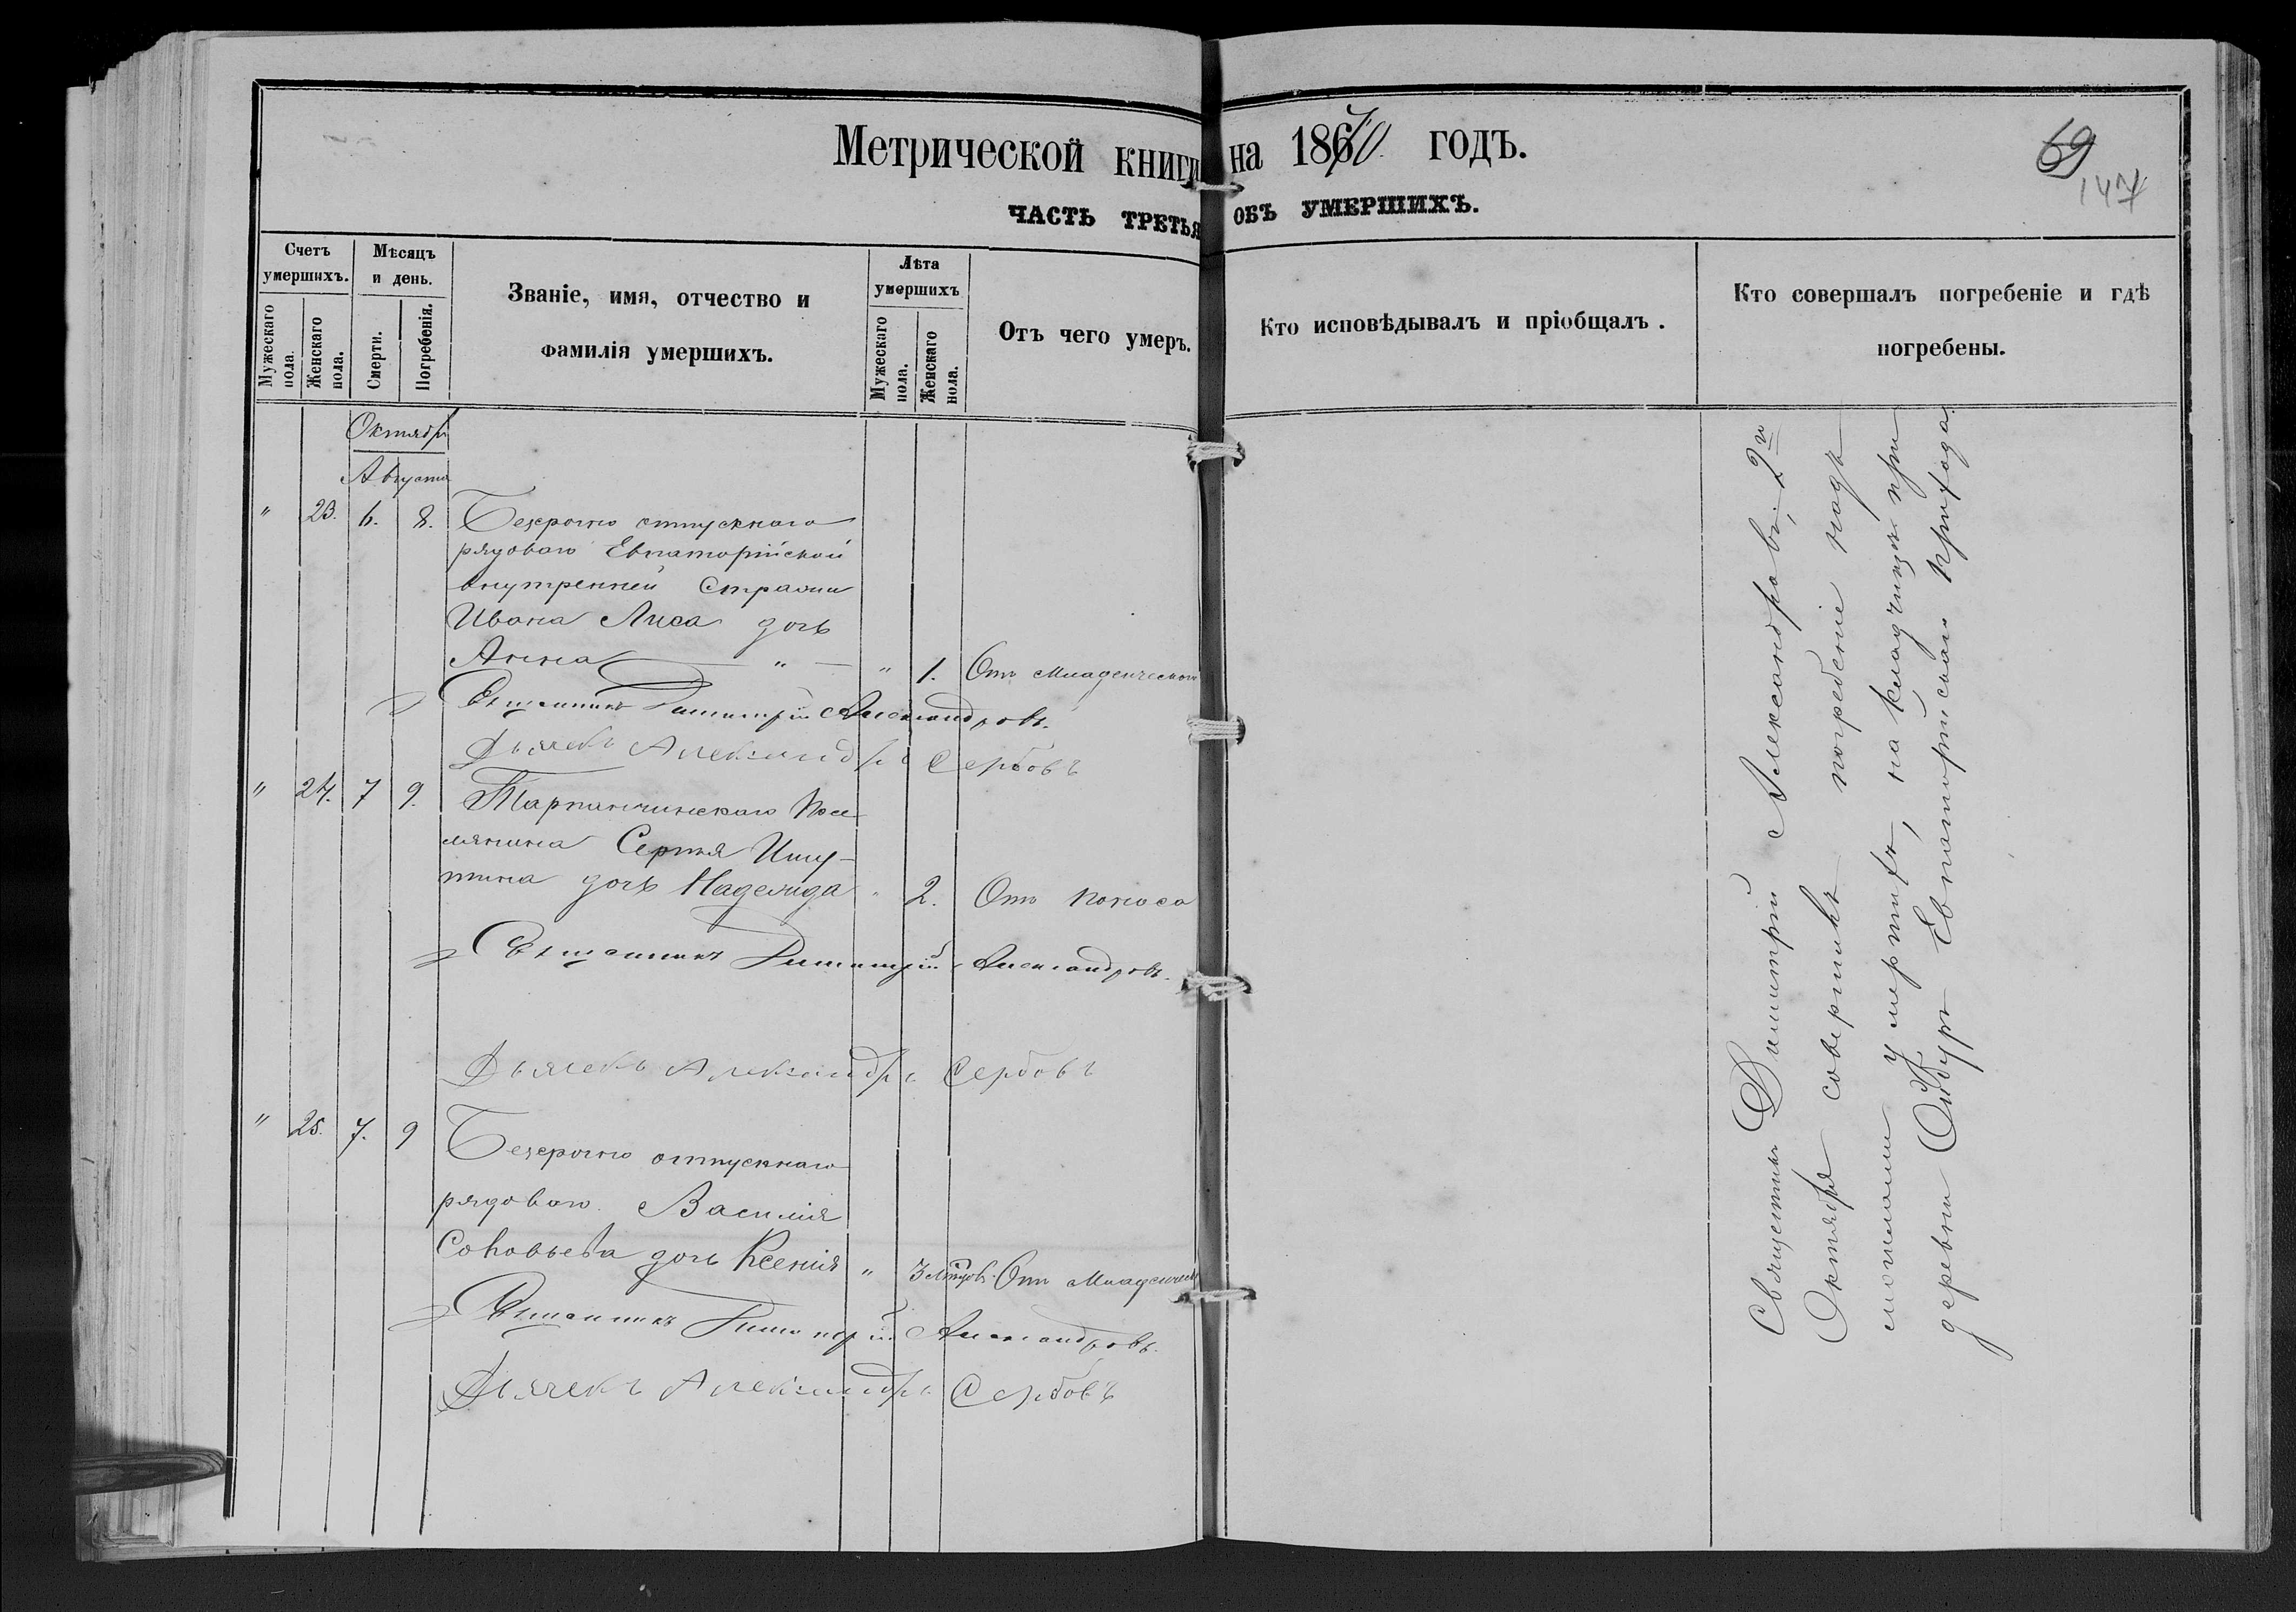 Метрической книги на 1870 годъ.
69
147
ЧАСТЬ ТРЕТЬЯ ОБЪ УМЕРШИХЪ.
Счетъ умершихъ.
Мужескаго пола.
Женскаго пола.
Мѣсяцъ и день.
Смерти.
Погребенія.
Званіе, имя, отчество и
фамилія умершихъ.
Лѣта умершихъ
Мужескаго пола.
Женскаго пола.
Отъ чего умеръ.
Кто исповѣдывалъ и пріобщалъ.
Кто совершалъ погребеніе и гдѣ
погребены.
Октября
Августа
" 23. 6. 8. Безсрочно отпускнаго
рядоваго Евпаторійской
внутренней Стражи
Ивана Лиса дочь
Анна " " 1. Отъ младенческой
Священникъ Димитрій Александровъ.
Дьячекъ Александръ Сербовъ
" 24. 7 9. Тарпанчинскаго посе-
лянина Сергѣя Ишу-
тина дочь Надежда " 2. Отъ поноса
Священникъ Димитрій Александровъ.
Дьячекъ Александръ Сербовъ
" 25. 7. 9 Безсрочно отпускнаго
рядоваго Василія
Соловьева дочь Ксенія " 3 мѣсяцовъ. Отъ младенческ
Священникъ Димитрій Александровъ.
Дьячекъ Александръ Сербовъ
Священникъ Димитрій Александровъ, 2го
Октября совершилъ погребеніе надъ
умершихъ, на кладбищѣ при
деревни Ойбуръ Евпаторійскаго прихода.